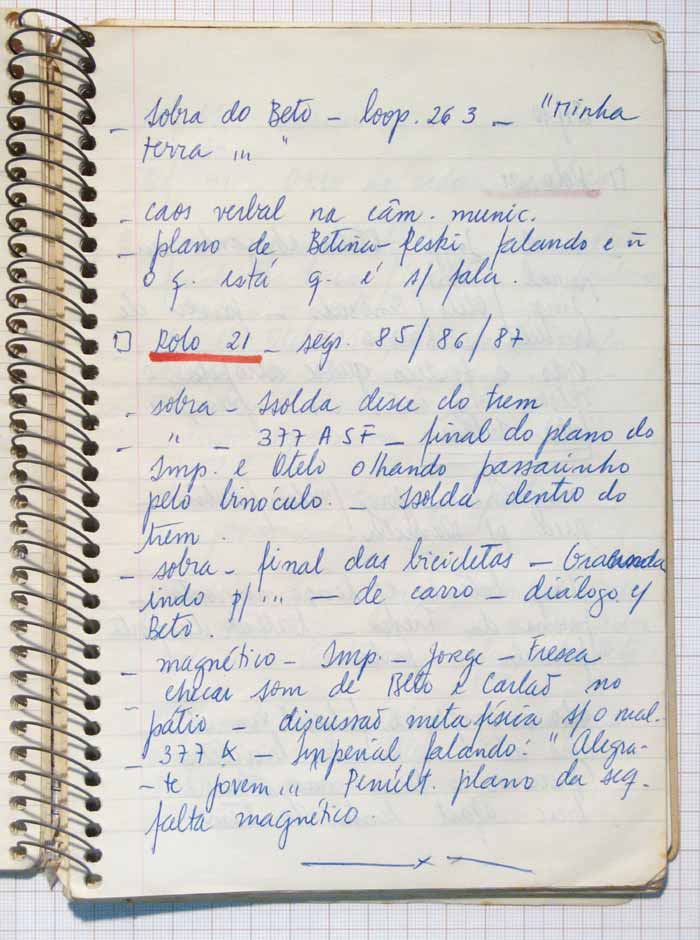 - Sobra do Beto - loop. 263 - "Minha
terra ... "
- caos verbal na câm. munic.
- plano de Betina-Peski falando e ñ
o q. está q. é s/ fala.
Rolo 21 - seqs. 85/86/87
- sobra - Isolda desce do trem
- " - 377 A SF - final do plano do
Imp. e Otelo olhando passarinho
pelo binóculo. - Isolda dentro do
trem.
- sobra - final das bicicletas -
indo p/ ... - de carro - diálogo c/
Beto.
- magnético - Imp - Jorge - Fresca
checar som de Beto e Carlão no
- pátio - discussão metafísica s/ o mal.
- 377 K - Imperial falando: "Alegra-
-te jovem..." Penúlt. plano da seq.
falta magnético.